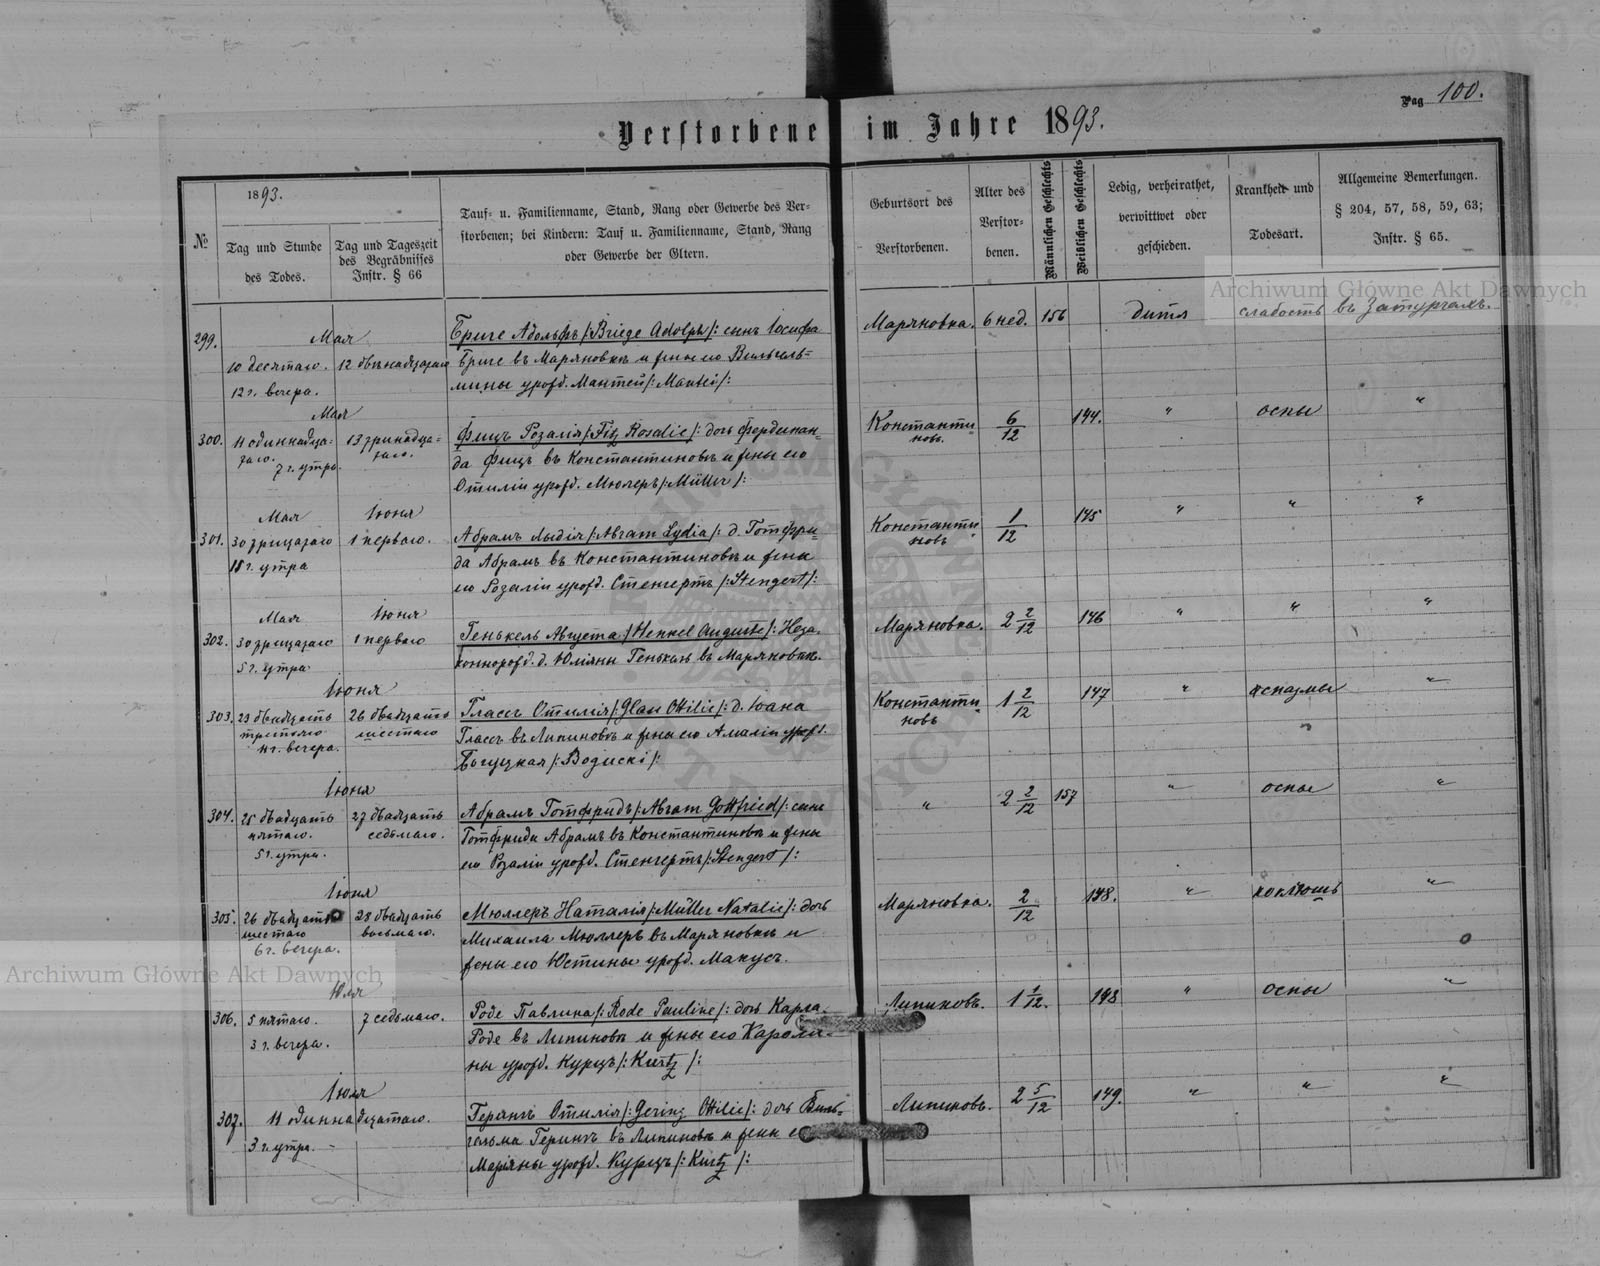 Pag 100.
Verstorbene im Jahre 1893.
№
1893.
Tag und Stunde
des Todes.
Tag und Tageszeit
des Begräbnisses
Instr. § 66
Tauf- u. Familienname, Stand, Rang oder Gewerbe des Ver-
storbenen; bei Kindern: Tauf u. Familienname, Stand, Rang
oder Gewerbe der Eltern.
Geburtsort des
Verstorbenen.
Alter des
Verstor-
benen.
Männlichen Geschlechts
Weiblichen Geschlechts
Ledig, verheirathet,
verwittwet oder
geschieden.
Krankheit und
Todesart.
Allgemeine Bemerkungen.
§ 204, 57, 58, 59, 63;
Instr. § 65.
Archiwum Główne Akt Dawnych
299.
Мая
10 десятаго.
12 г. вечера.
12 двѣнадцатаго
Бриге Адольфъ /: Briege Adolph /: сынъ Іосифа
Бриге въ Маряновкѣ и жены его Вильгель=
мины урожд. Мантей /: Mantei /:
Маряновка. 6 нед. 156 дитя слабость въ Затурцахъ.
300.
Мая
11 одиннадца=
таго.
7 г. утра.
13 тринадца=
таго.
Фицъ Розалія /: Fitz Rosalie /: дочь Фердинан=
да Фицъ въ Константиновкѣ и жены его
Отиліи урожд. Мюлеръ /: Müller /:
Константи
новъ. 6/12 144. " оспы "
301.
Мая Іюня
30 трицатаго
г. утра
1 перваго.
Абрамъ Лыдія /: Abram Lydia /: д. Готфри=
да Абрамъ въ Константиновкѣ и жены
его Розаліи урожд. Стенгертъ /: Stengert /:
Константи
новъ. 1/12 145 " " "
302.
Мая Іюня
30 трицатаго
5 г. утра
1 перваго
Генькель Августа /: Henkel Auguste /: Неза.
коннорожд. д. Юліяны Генькель въ Маряновкѣ.
Маряновка. 2 2/12 146 " " "
303.
Іюня
23 двадцать
третьяго
11 г. вечера.
26 двадцать
шестаго
Глассъ Отилія /: Glass Ottilie /: д. Іоана
Глассъ въ Липиновкѣ и жены его Амаліи урожд.
Богуцкая /: Bogucki /:
Константи
новъ 1 2/12 147 " "
304.
Іюня
25 двадцать
пятаго.
5 г. утра.
27 двадцать
седьмаго.
Абрамъ Готфридъ /: Abram Gottfried /: сынъ
Готфрида Абрамъ въ Константиновкѣ и жены
его Розаліи урожд. Стенгертъ /: Stengert /:
" 2 2/12 157 " оспы "
305.
Іюня
26 двадцать
шестаго
6 г. вечера.
28 двадцать
восьмаго.
Мюллеръ Наталія /: Müller Natalie /: дочь
Михаила Мюллеръ въ Маряновкѣ и
жены его Юстины урожд. Макусъ.
Маряновка. 2/12 148. " коклюшъ "
Archiwum Główne Akt Dawnych
306.
Юля
5 пятаго.
3 г. вечера.
7 седьмаго.
Роде Павлина /: Rode Pauline /: дочь Карла
Роде въ Липиновкѣ и жены его Кароли=
ны урожд. Курцъ /: Kurtz /:
Липиновъ. 1 1/12. 148 " оспы "
307.
Іюля
11 одиннадцатаго.
3 г. утра.
Герингъ Отилія /: Gering Ottilie /: дочь Виль=
гельма Герингъ въ Липиновкѣ и жены
Маріяны урожд. Курцъ /: Kurtz /:
Липиновъ. 2 5/12 149. " " "